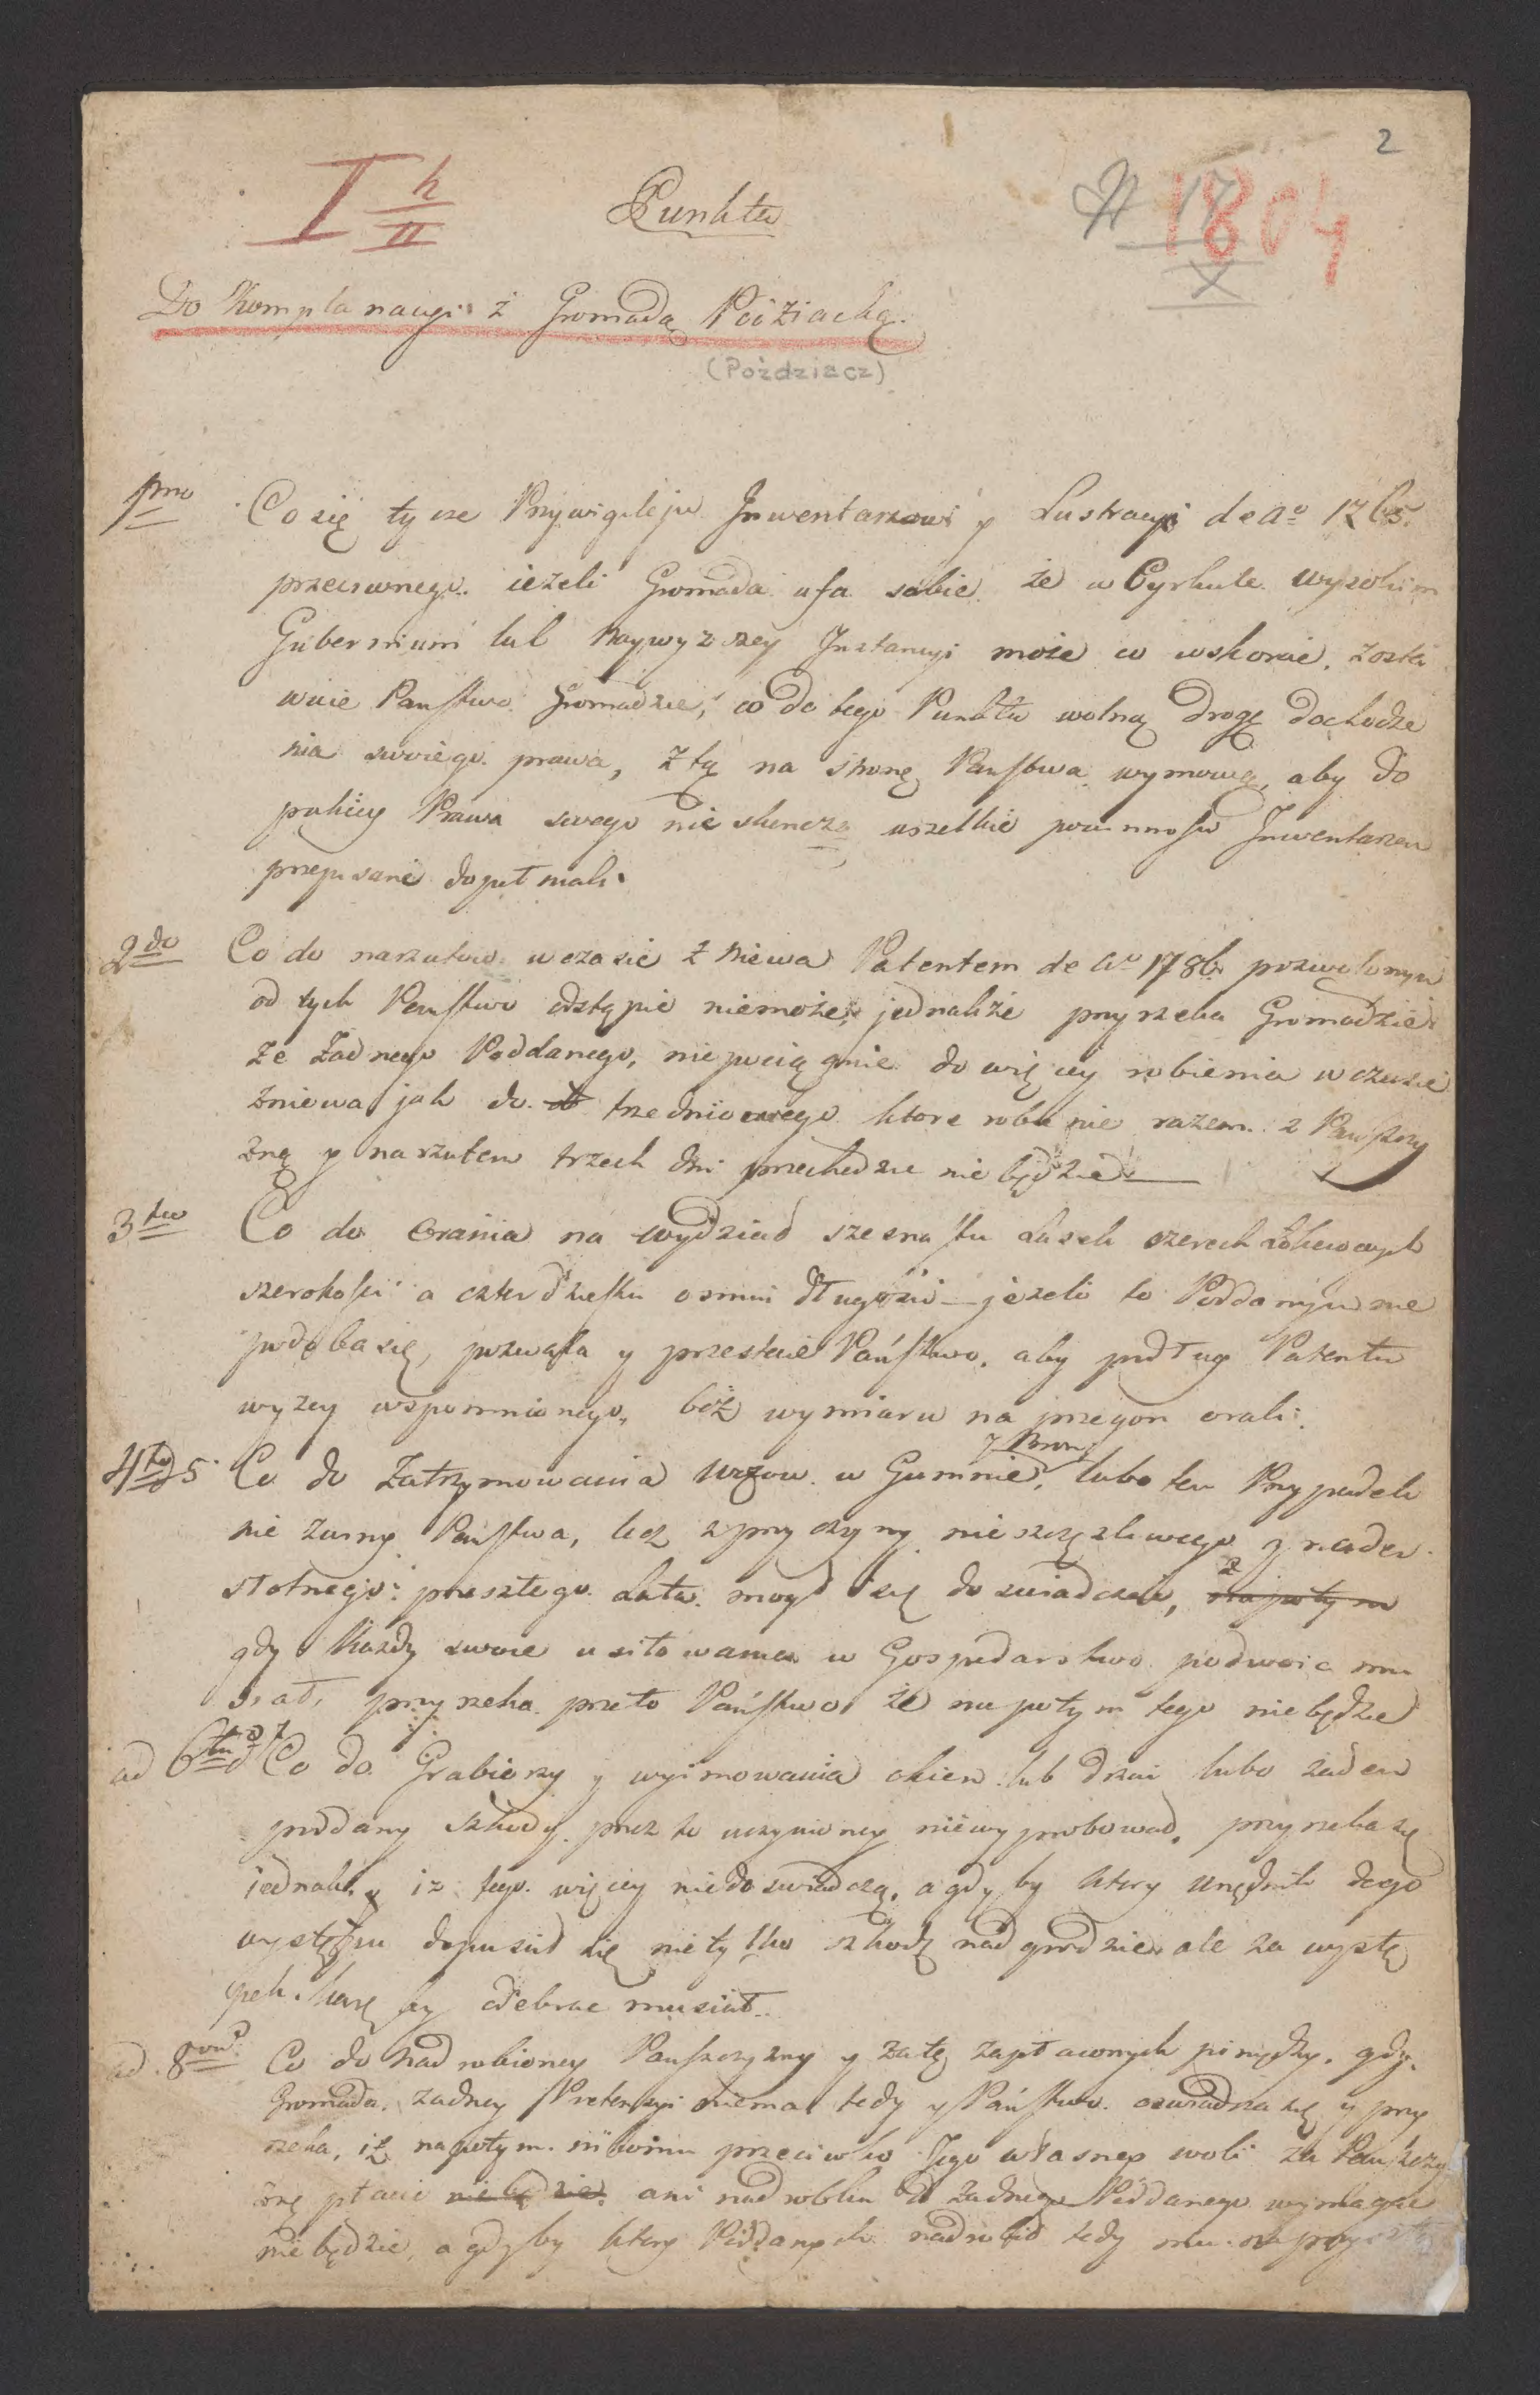 2
I h/II
Punkta
N 17/X
1804
Do Komplanacyi z Gromadą Póżdziacką.
(Pożdziacz)
1mo Co się tycze Przywigileju Inwentarzowi y Lustracyi de Ao 1765.
przeciwnego. ieżeli Gromada ufa sobie że w Cyrkule wysokim
Gubernium lub Naywyższey Instancyi może co wskorać, zosta
wuie Państwo Gromadzie, co do tego Punktu wolną drogę dochodze
nia swoiego prawa, z tą na stronę Państwa wymową, aby do
pokiey Prawa swego nie skończą wszelkie powinnośu Inwentarzem
przepisane dopełniali.
2do Co do narzutow w czasie żniewa Patentem de Ao 1786 pozwolonym
od tych Państwo odstąpić niemoże, jednakże przyrzeka Gromadzie
że żadnego Poddanego, niepociągnie do więcey robienia w czasie
żniewa jak do trzedniowego ktore robienie razem z Pańszczy
zną y narzutem trzech dni przechodzić nie będzie
3tio Co do Orania na wydział szesnastu Lasek czterech Łokciowych
szerokości a czterdziestu osmiu długości — jeżeli to Poddanym nie
podoba się, pozwala y przestaie Państwo, aby podług Patentu
wyżey wspomnionego, bez wymiaru na przegon orali.
4to 5 Co do Zatrzymowania Wozow w Gumnie y Bron, lubo ten Przypadek
nie z winy Państwa, lecz z przyczyny nieszczęsliwego y nader
słotnego przeszłego Lata mogł się doswiadczać, napotym
gdy Każdy swoie usiłowania w Gospodarstwo podwoić mu
siał, przyrzeka przeto Państwo że napotym tego niebędzie
ad 6tu et 7 Co do Grabierzy y wyimowania okien lub drzwi lubo żaden
poddany szkody przez to uczynioney niewyprobował, przyrzeka się
iednak y iż tego więcey niedoswiadczą, a gdyby ktory Urzędnik tego
występku dopuscił się nie tylko szkodę nadgrodzić, ale za wystę
pek karę by odebrać musiał.
ad 8vo Co do Nadrobioney Pańszczyzny y za tę zapłaconych pieniędzy, gdy
Gromada żadney Pretensyi niema tedy y Państwo oswiadcza się y przy
rzeka, iż napotym nikomu przeciwko Jego własney woli za Pańszczy
znę płacić nie będzie ani nadrobku od żadnego Poddanego wymagać
niebędzie, a gdyby ktory Poddanych nadrobił tedy mu na przy